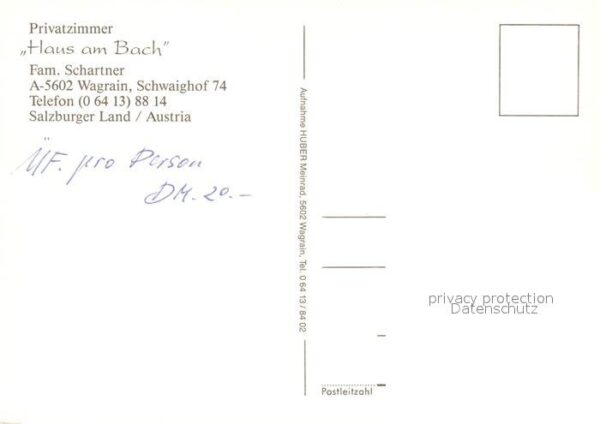 Privatzimmer
„Haus am Bach"
Fam. Schartner
A-5602 Wagrain, Schwaighof 74
Telefon (0 64 13) 88 14
Salzburger Land / Austria
ÜF. pro Person
DM. 20.-
Aufnahme HUBER Meinrad, 5602 Wagrain, Tel. 0 64 13 / 84 02
privacy protection
Datenschutz
Postleitzahl